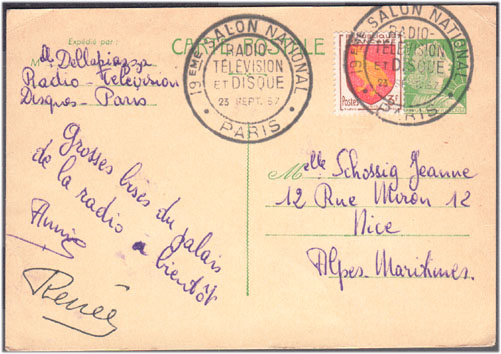 Expédié par
CARTE POSTALE
M. Dellapiazza
Radio-Télévision
Disques-Paris
19EME SALON NATIONAL
RADIO-
TÉLÉVISION
ET DISQUE
23 SEPT. 57
• PARIS •
19EME SALON NATIONAL
RADIO-
TÉLÉVISION
ET DISQUE
23
PARIS
Postes
Grosses bises du palais
de la radio à bientôt
Annie
Renée
Melle Schossig Jeanne
12 Rue Miron 12
Nice
Alpes. Maritimes.